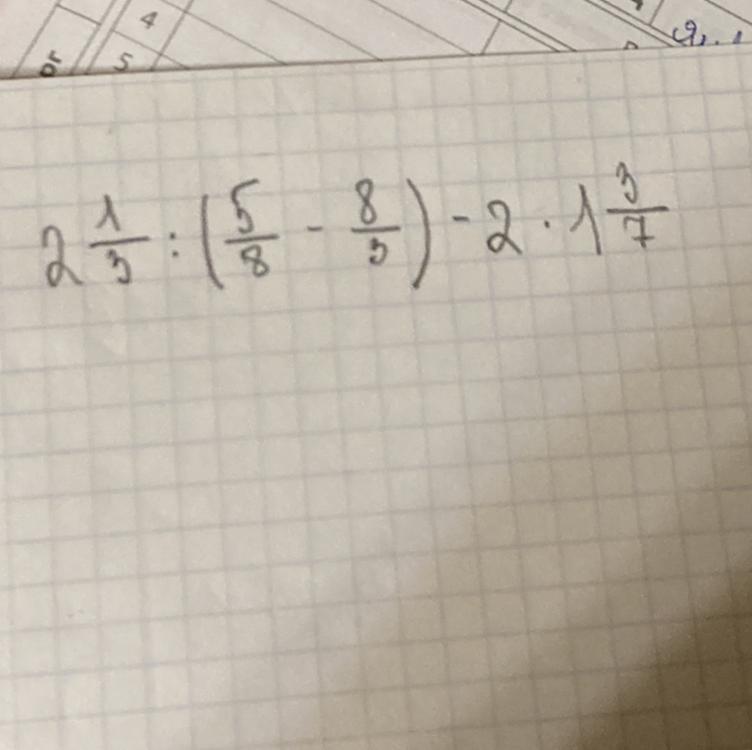 4
5
2 1/3 : (5/8 - 8/3) - 2 · 1 3/7